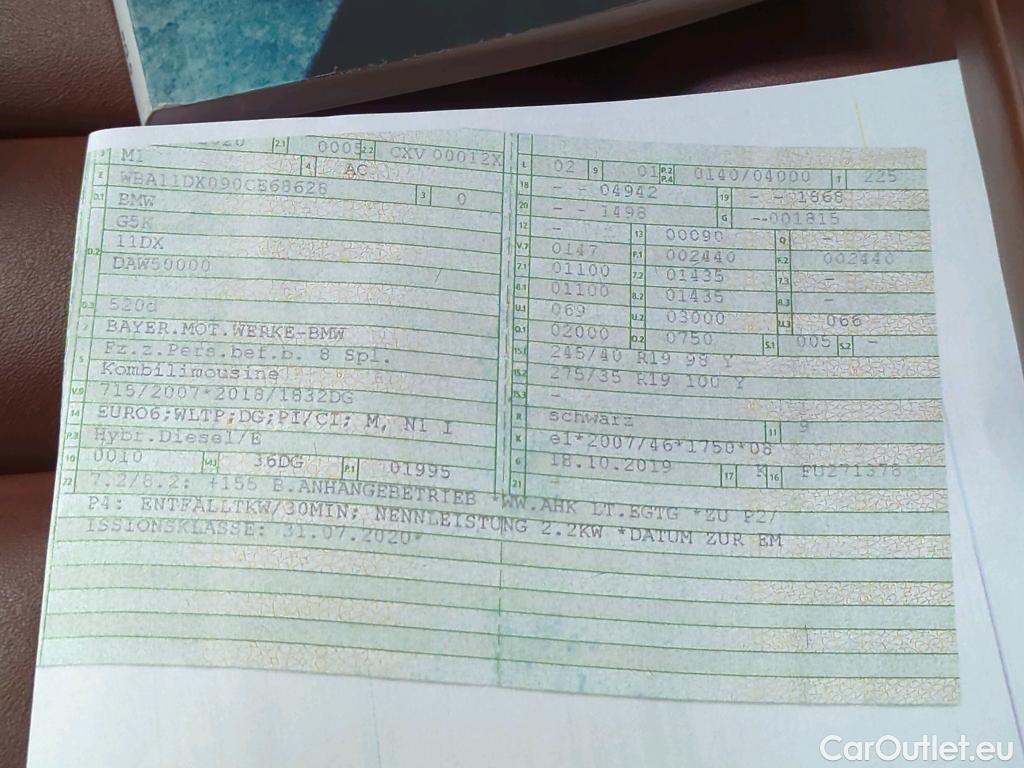 2.1 0005 2.2 CXV 00012X
J M1 4 AC
E WBA11DX090CE68628 3 0
D.1 BMW
G5K
D.2 11DX
DAW50000
D.3 520d
2 BAYER.MOT.WERKE-BMW
5 Fz.z.Pers.bef.b. 8 Spl.
Kombilimousine
V.9 715/2007*2018/1832DG
14 EURO6;WLTP;DG;PI/CI; M, N1 I
P.3 Hybr.Diesel/E
10 0010 14.1 36DG P.1 01995
L 02 9 01 P.2 P.4 0140/04000 T 225
18 - - 04942 19 - - 1868
20 - - 1498 G --001815
12 - 13 00090 Q -
V.7 0147 F.1 002440 F.2 002440
7.1 01100 7.2 01435 7.3 -
8.1 01100 8.2 01435 8.3 -
U.1 069 U.2 03000 U.3 066
O.1 02000 O.2 0750 S.1 005 S.2 -
15.1 245/40 R19 98 Y
15.2 275/35 R19 100 Y
15.3 -
R schwarz 11 9
K e1*2007/46*1750*08
6 18.10.2019 17 K 16 FU271378
21 -
22 7.2/8.2: +155 B.ANHÄNGEBETRIEB *WW.AHK LT.EGTG *ZU P2/
P4: ENTFÄLLTKW/30MIN; NENNLEISTUNG 2.2KW *DATUM ZUR EM
ISSIONSKLASSE: 31.07.2020*
CarOutlet.eu